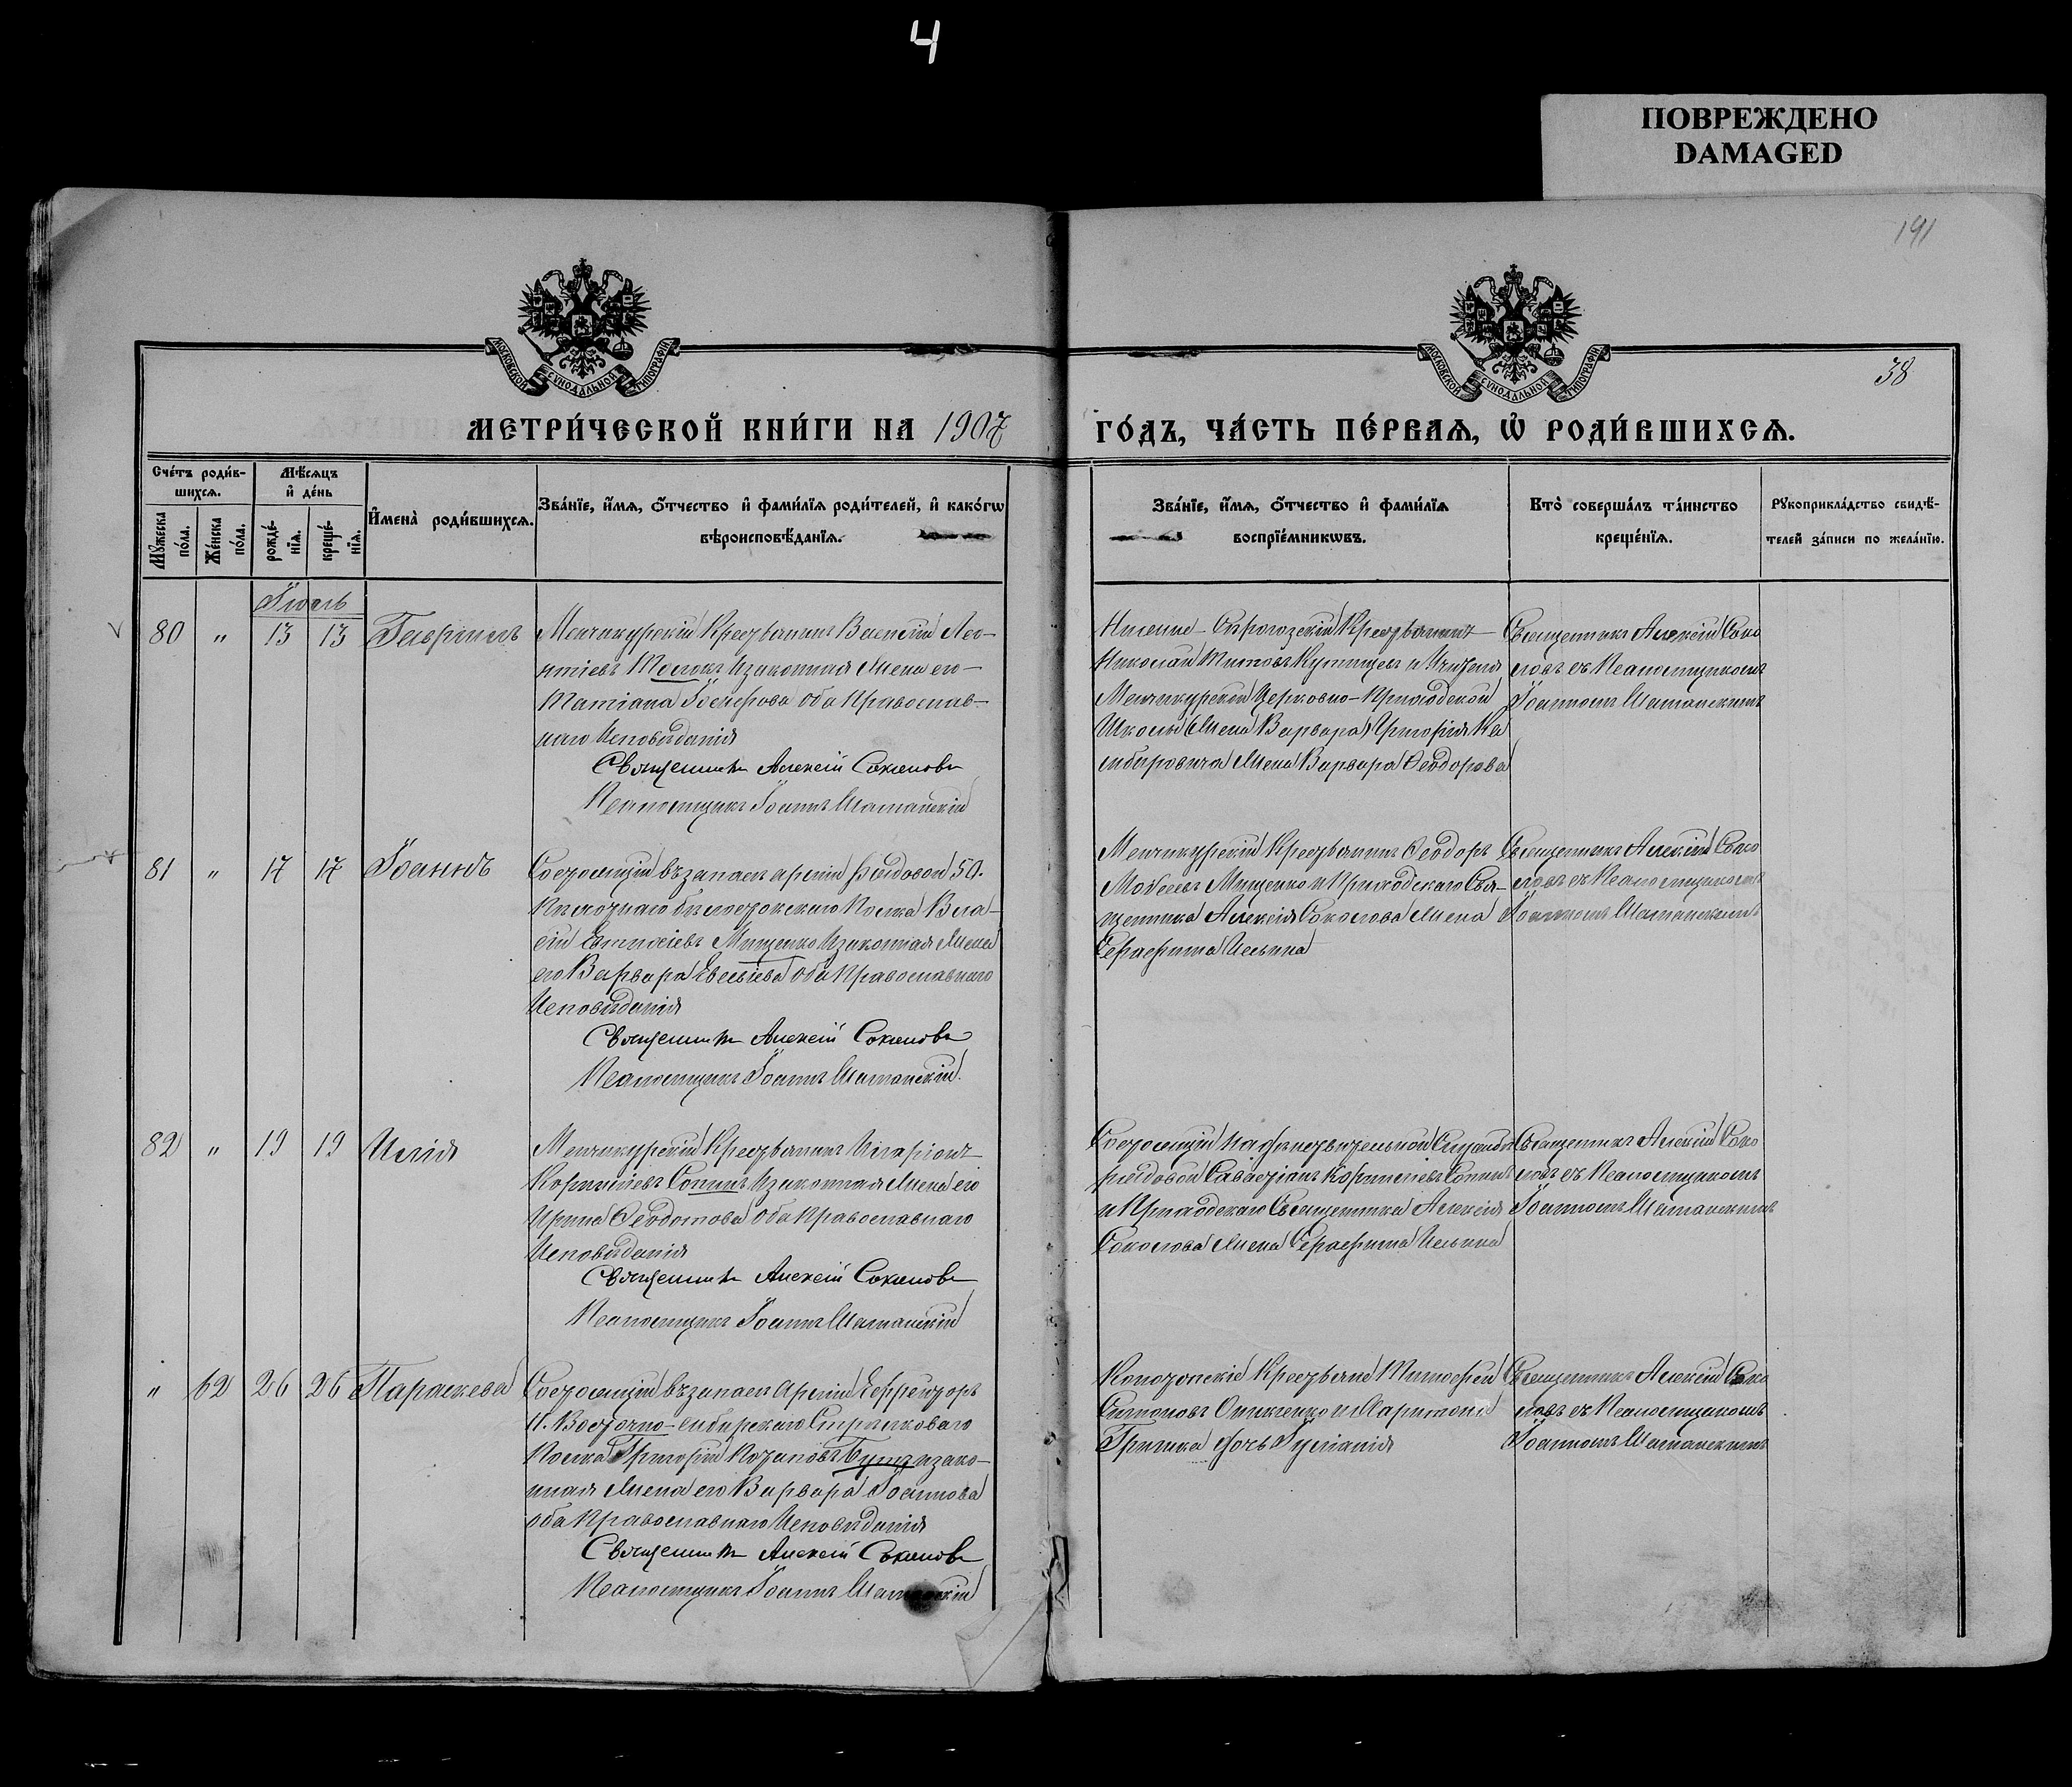 4
ПОВРЕЖДЕНО
DAMAGED
191
38
МОСКОВСКОЙ СѴНОДАЛЬНОЙ ТИПОГРАФІИ
МОСКОВСКОЙ СѴНОДАЛЬНОЙ ТИПОГРАФІИ
МЕТРИ́ЧЕСКОЙ КНИ́ГИ НА 1907
ГО́ДЪ, ЧА́СТЬ ПЕ́РВАѦ, Ѡ҆ РОДИ́ВШИХСѦ.
Сче́тъ роди́в-
шихсѧ.
Мѣ́сѧцъ
и҆ де́нь
Мꙋ́жеска
по́ла.
Же́нска
по́ла.
рожде́-
нїѧ.
креще́-
нїѧ.
И҆мена̀ роди́вшихсѧ.
Зва́нїе, и҆́мѧ, ѻ҆́тчество и҆ фами́лїѧ роди́телей, и҆ како́гѡ
вѣроисповѣ́данїѧ.
Зва́нїе, и҆́мѧ, ѻ҆́тчество и҆ фами́лїѧ
воспрїе́мникѡвъ.
Кто̀ соверша́лъ та́инство
креще́нїѧ.
Рꙋкоприкла́дство свидѣ́-
телей за́писи по жела́нїю.
Іюль
80 " 13 13 Гавриилъ
Менчикурскій Крестьянинъ Василій Лео-
нтіевъ Молокъ и законная жена его
Татіана Іосифова оба Православ-
наго Исповѣданія
Священникъ Алексій Соколовъ
Псаломщикъ Іоаннъ Шаманскій
Нижне-Сірогозскій Крестьянинъ
Николай Титовъ и Учителя
Менчикурской Церковно-Приходской
Школы жена Варвара
жена Варвара Ѳеодорова
Священникъ Алексій Соко
ловъ съ Псаломщикомъ
Іоанномъ Шаманскимъ
81 " 17 17 Іоаннъ
Состоящій въ запасѣ арміи рядовой 50.
Пѣхотнаго бѣлостокскаго Полка Вла-
сій Мищенко и законная жена
его Варвара оба Православнаго
Исповѣданія
Священникъ Алексій Соколовъ
Псаломщикъ Іоаннъ Шаманскій.
Менчикурскій Крестьянинъ Ѳеодоръ
Мищенко и Приходскаго Свя-
щенника Алексія Соколова жена
Серафима Ильина
Священникъ Алексій Соко
ловъ съ Псаломщикомъ
Іоанномъ Шаманскимъ
82 " 19 19 Илія
Менчикурскій Крестьянинъ Иларіонъ
Корниліевъ Сопинъ и законная жена его
Ирина Ѳеодотова оба Православнаго
Исповѣданія
Священникъ Алексій Соколовъ
Псаломщикъ Іоаннъ Шаманскій
Состоящій На дѣйствительной Службѣ
рядовой Корниліевъ Сопинъ
и Приходскаго Священника Алексія
Соколова жена Серафима Ильина
Священникъ Алексій Соко
ловъ съ Псаломщикомъ
Іоанномъ Шаманскимъ
" 62 26 26 Параскева
Состоящій въ запасѣ Арміи Ефрейторъ
11. Восточно-сибирскаго Стрѣлковаго
Полка Григорій и зако-
нная жена его Варвара Іоаннова
оба Православнаго Исповѣданія
Священникъ Алексій Соколовъ
Псаломщикъ Іоаннъ Шаманскій
Крестьяне Тимоѳей
Симоновъ и Харитона
дочь Іуліанія
Священникъ Алексій Соко
ловъ съ Псаломщикомъ
Іоанномъ Шаманскимъ